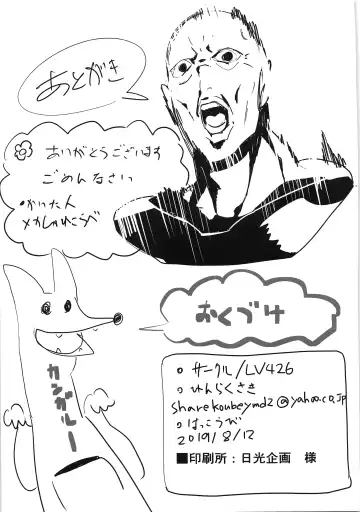 あとがき
ありがとうございます
ごめんなさい
・かいた人
メカしゃれこうべ
おくづけ
カンガルー
○サークル/LV426
○れんらくさき
sharekoubeymd2@yahoo.co.jp
○はっこうび
2019/8/12
■印刷所：日光企画 様